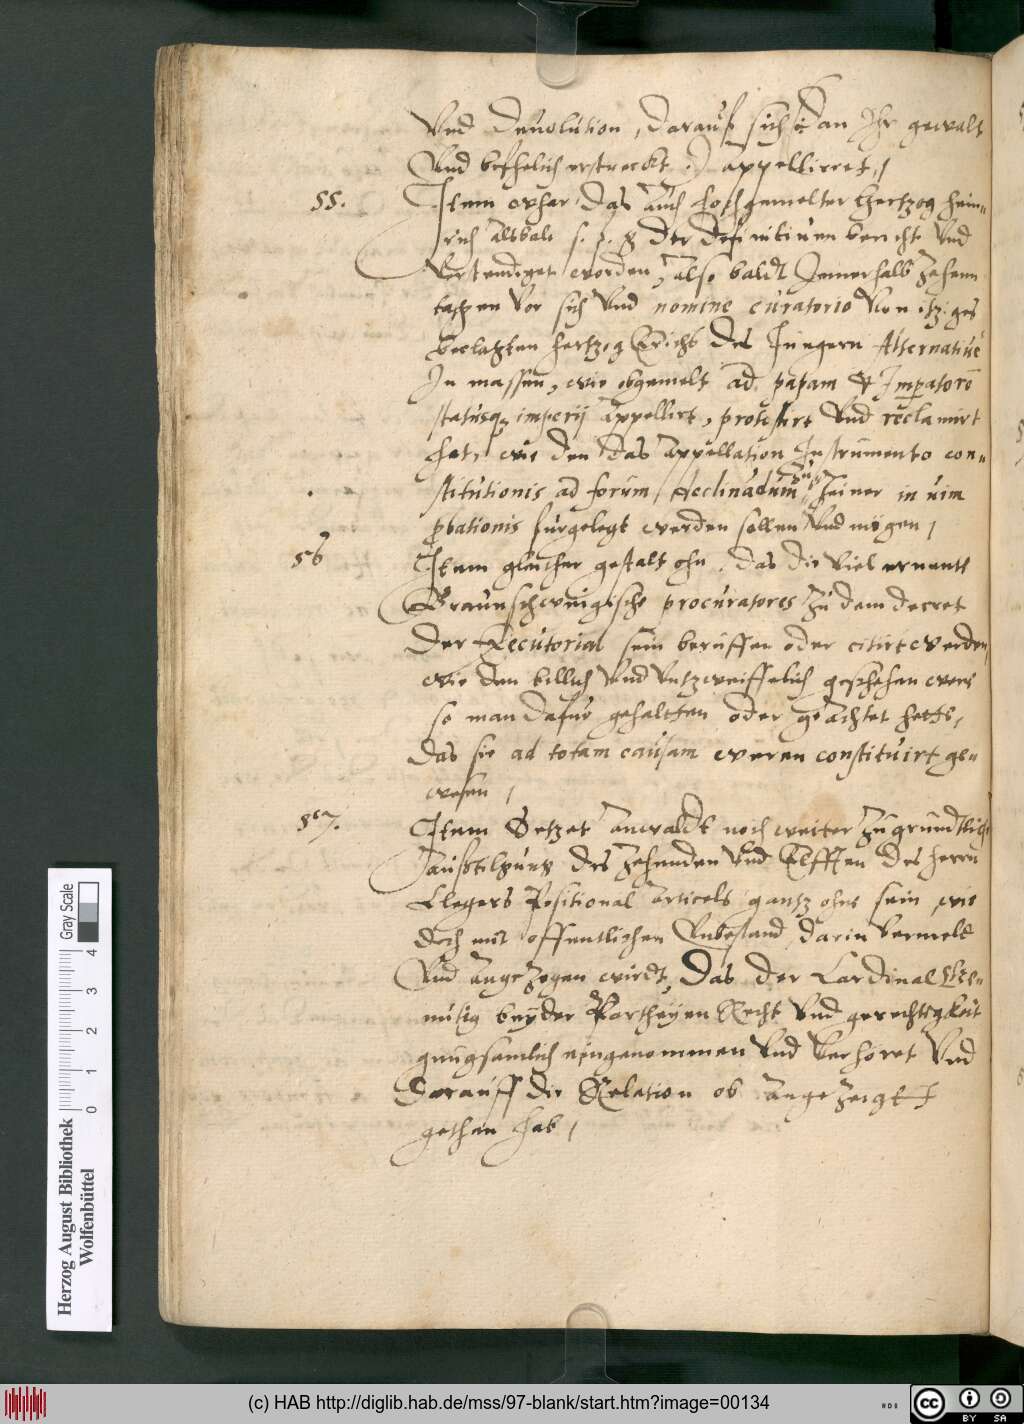 Vnd Deuolution, darauß sich dan Ihr gewalt
Vnd befhelich erstreckt :) appelliret,
55.
Item wahr das auch hochgemelter Hertzog Hein=
rich alsbalt der definitiuen bericht Vnd
Verstendiget worden, also baldt Innerhalb zehenn
taghen vor sich Vnd nomine curatorio Von itziges
beclagten hertzog Erichs des Jungern Alternatiuè
In massen, wie obgemelt ad papam & Imperatorē
statusq; imperij appellirt, protestirt Vnd reclamirt
hat, wie den das Appellation Instrumento con=
stitutionis ad forum seiner in uim
probationis furgelegt werden sollen Vnd mögen,
56
Item gleicher gestalt ohn, das die Viel ernante
Braunschweigische procuratores zu dem decret
der Executorial sein beruffen oder citirt werden,
wie den billich Vnd Vntzweiffelich geschehen were
so man dafur gehaltten oder geachtet hette,
das sie ad totam causam weren constituirt ge=
wesen,
57.
Item Setzet anwaldt noch weiter zu grundtlicher
außtilgung des zehenden Vnd Elfften des herrn
Clegers Positional articels gantz ohne sein, wie
doch mit offentlichen Vnbestand darin Vermelt
Vnd angezogen wirdt, Das der Cardinal
beyder Partheyen Recht Vnd gerechtigkeit
gnugsamlich eingenommen Vnd Verhöret Vnd
darauff die Relation ob angezeigt
gethan hab,
Herzog August Bibliothek
Wolfenbüttel
0 1 2 3 4
Gray Scale
(c) HAB http://diglib.hab.de/mss/97-blank/start.htm?image=00134
cc BY SA